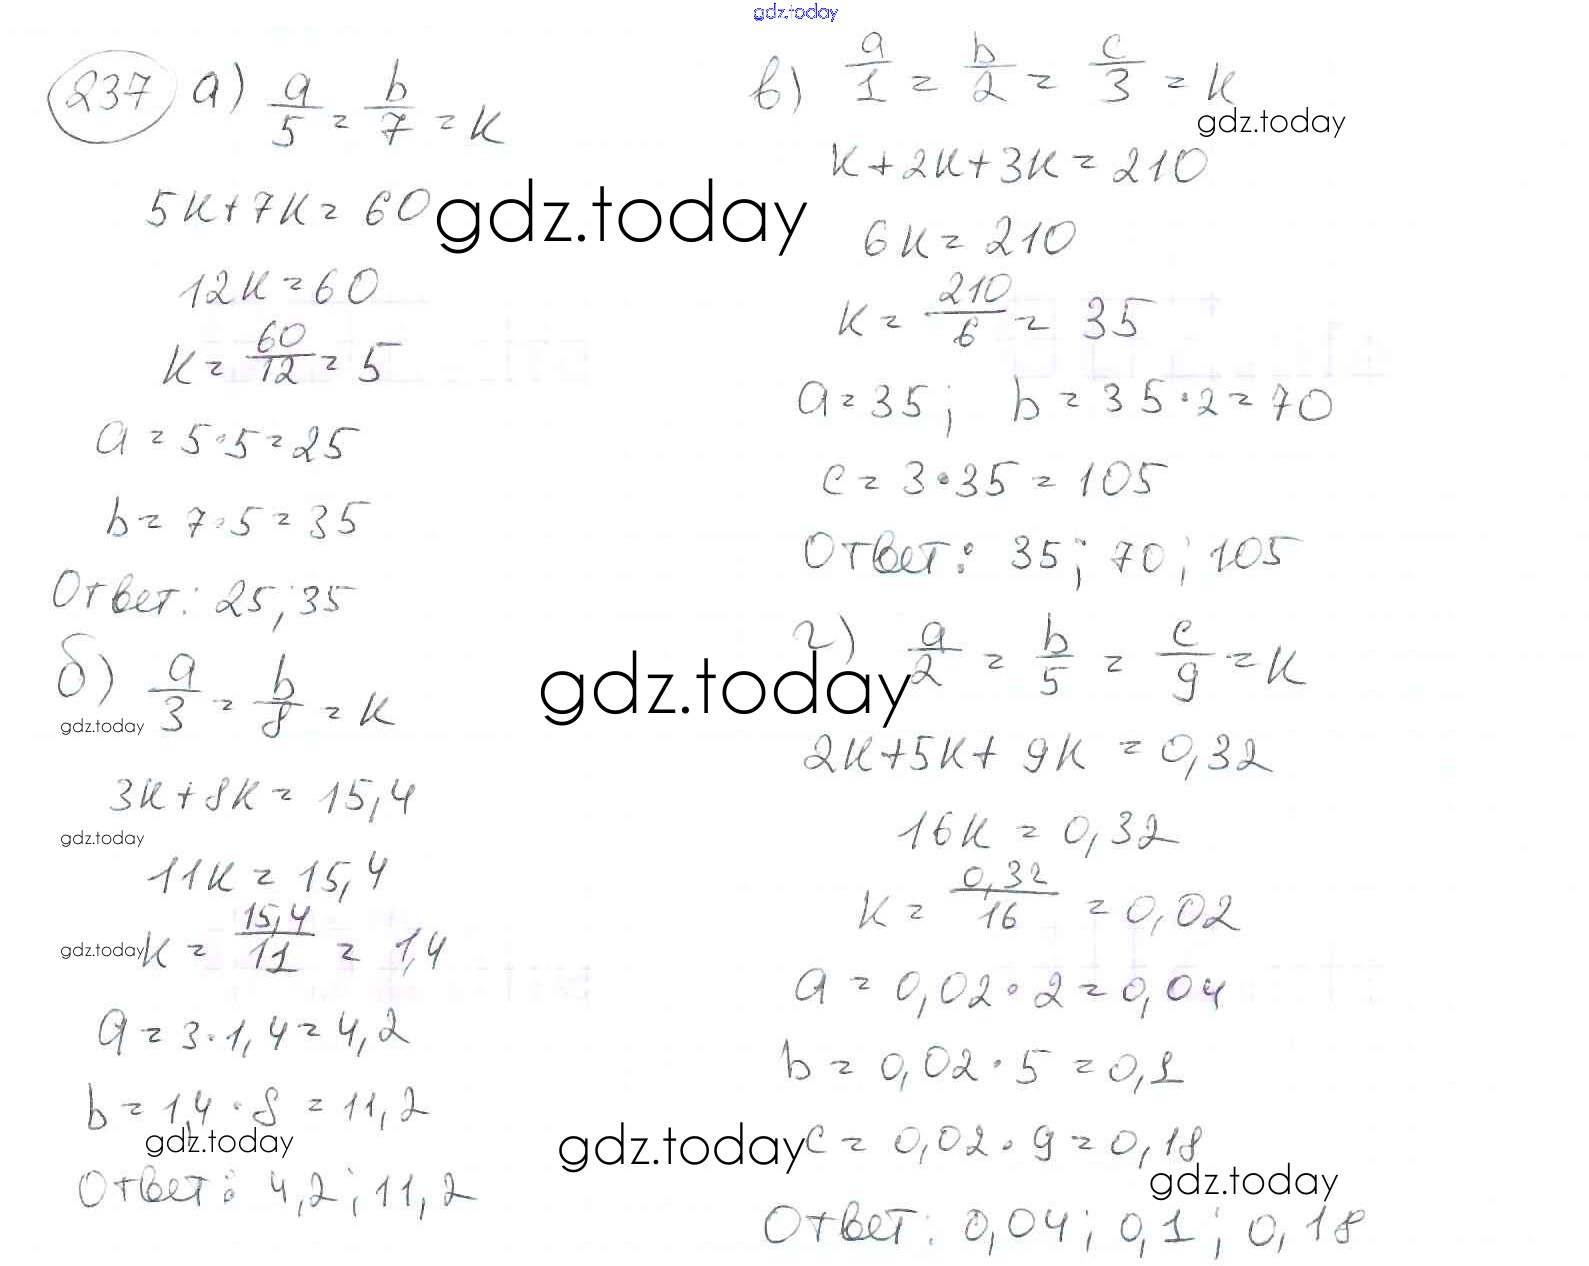 gdz.today
237 а) a/5 = b/7 = k
5k+7k = 60
12k = 60
k = 60/12 = 5
a = 5·5 = 25
b = 7·5 = 35
Ответ: 25; 35
б) a/3 = b/8 = k
3k+8k = 15,4
11k = 15,4
k = 15,4/11 = 1,4
a = 3·1,4 = 4,2
b = 1,4·8 = 11,2
Ответ: 4,2; 11,2
в) a/1 = b/2 = c/3 = k
k+2k+3k = 210
6k = 210
k = 210/6 = 35
a = 35; b = 35·2 = 70
c = 3·35 = 105
Ответ: 35; 70; 105
г) a/2 = b/5 = c/9 = k
2k+5k+9k = 0,32
16k = 0,32
k = 0,32/16 = 0,02
a = 0,02·2 = 0,04
b = 0,02·5 = 0,1
c = 0,02·9 = 0,18
Ответ: 0,04; 0,1; 0,18
gdz.today
gdz.today
gdz.today
gdz.today
gdz.today
gdz.today
gdz.today
gdz.today
gdz.today